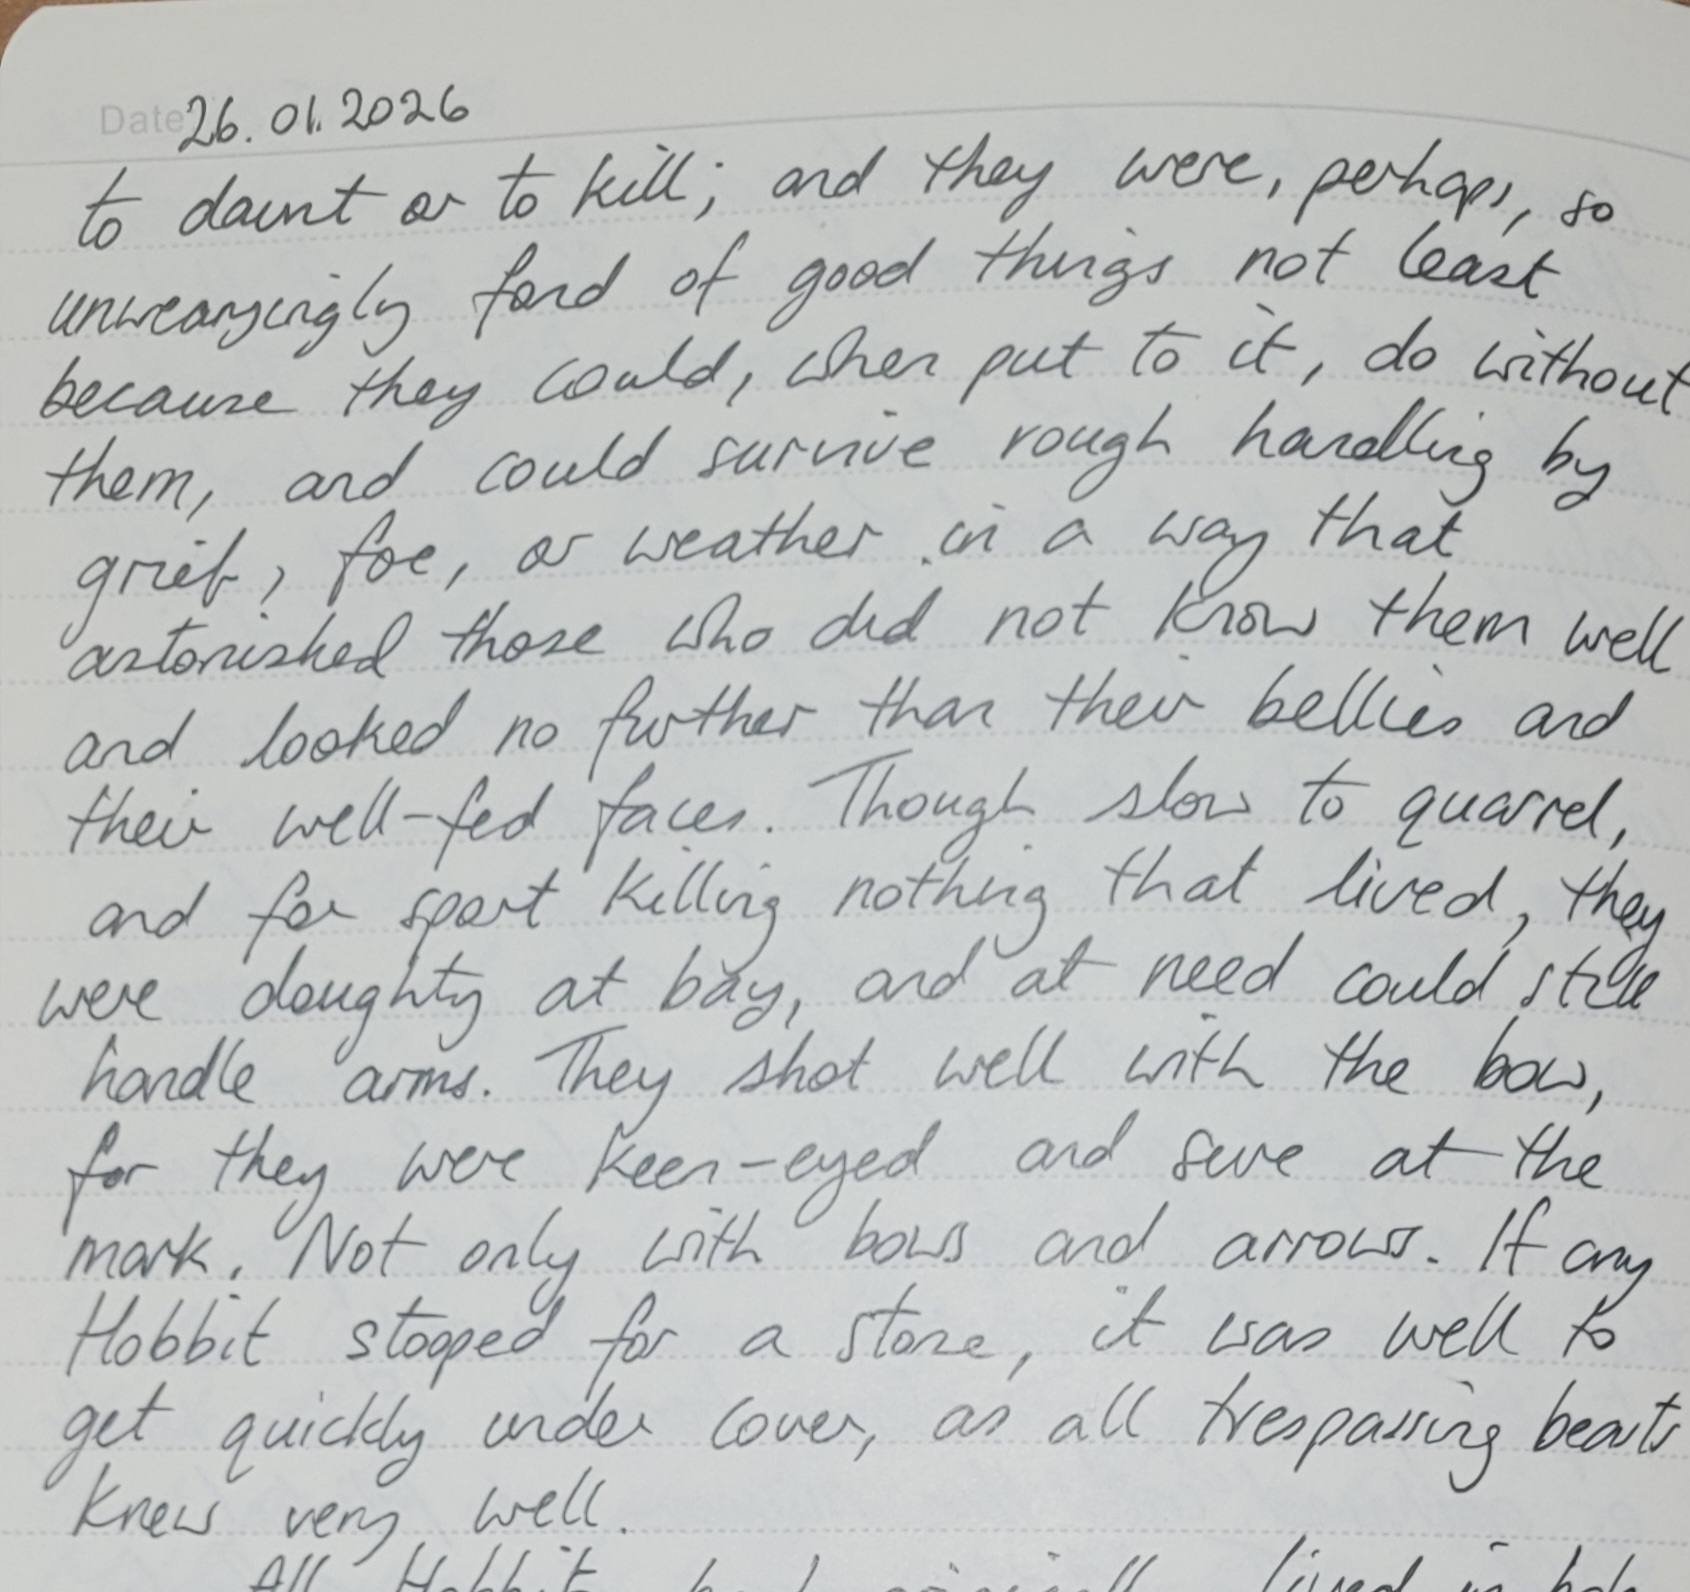 Date 26.01.2026
to daunt or to kill; and they were, perhaps, so
unwearyingly fond of good things not least
because they could, when put to it, do without
them, and could survive rough handling by
grief, foe, or weather in a way that
astonished those who did not know them well
and looked no further than their bellies and
their well-fed faces. Though slow to quarrel,
and for sport killing nothing that lived, they
were doughty at bay, and at need could still
handle arms. They shot well with the bow,
for they were keen-eyed and sure at the
mark. Not only with bows and arrows. If any
Hobbit stooped for a stone, it was well to
get quickly under cover, as all trespassing beasts
knew very well.
All Hobbits had originally lived in